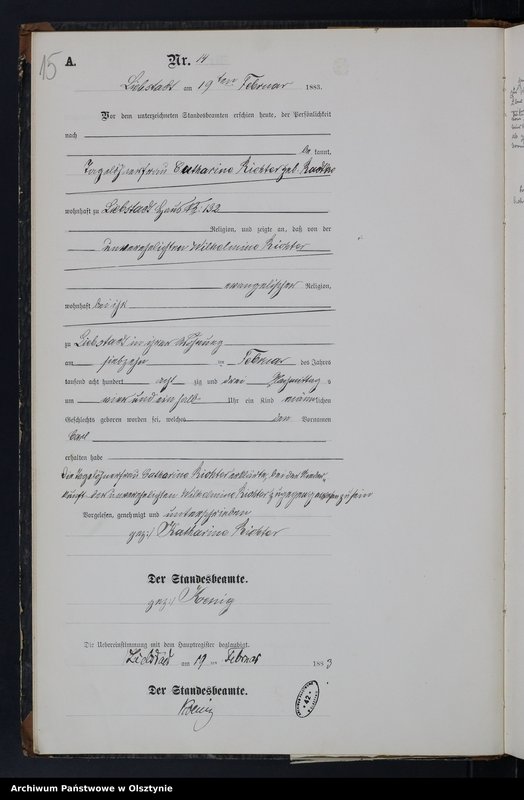 15
A.
Nr. 14
Liebstadt am 19ten Februar 1883.
Vor dem unterzeichneten Standesbeamten erschien heute, der Persönlichkeit
nach
be kannt,
Tagelöhnerfrau Catharina Richter geb. Radtke
wohnhaft zu Liebstadt Haus No 132
Religion, und zeigte an, daß von der
unverehelichten Wilhelmine Richter
evangelischer Religion,
wohnhaft bei ihr
zu Liebstadt in ihrer Wohnung
am siebzehn ten Februar des Jahres
tausend acht hundert acht zig und drei Nachmittag s
um vier und ein halb Uhr ein Kind männlichen
Geschlechts geboren worden sei, welches den Vornamen
Carl
erhalten habe
Die Tagelöhnerfrau Catharina Richter erklärte, bei der Nieder-
kunft der unverehelichten Wilhelmine Richter zugegen gewesen zu sein
Vorgelesen, genehmigt und unterschrieben
gez. Katharina Richter
Der Standesbeamte.
gez. Koenig
Die Uebereinstimmung mit dem Hauptregister beglaubigt.
Liebstadt am 19 ten Februar 1883
Der Standesbeamte.
Koenig
42
Archiwum Państwowe w Olsztynie